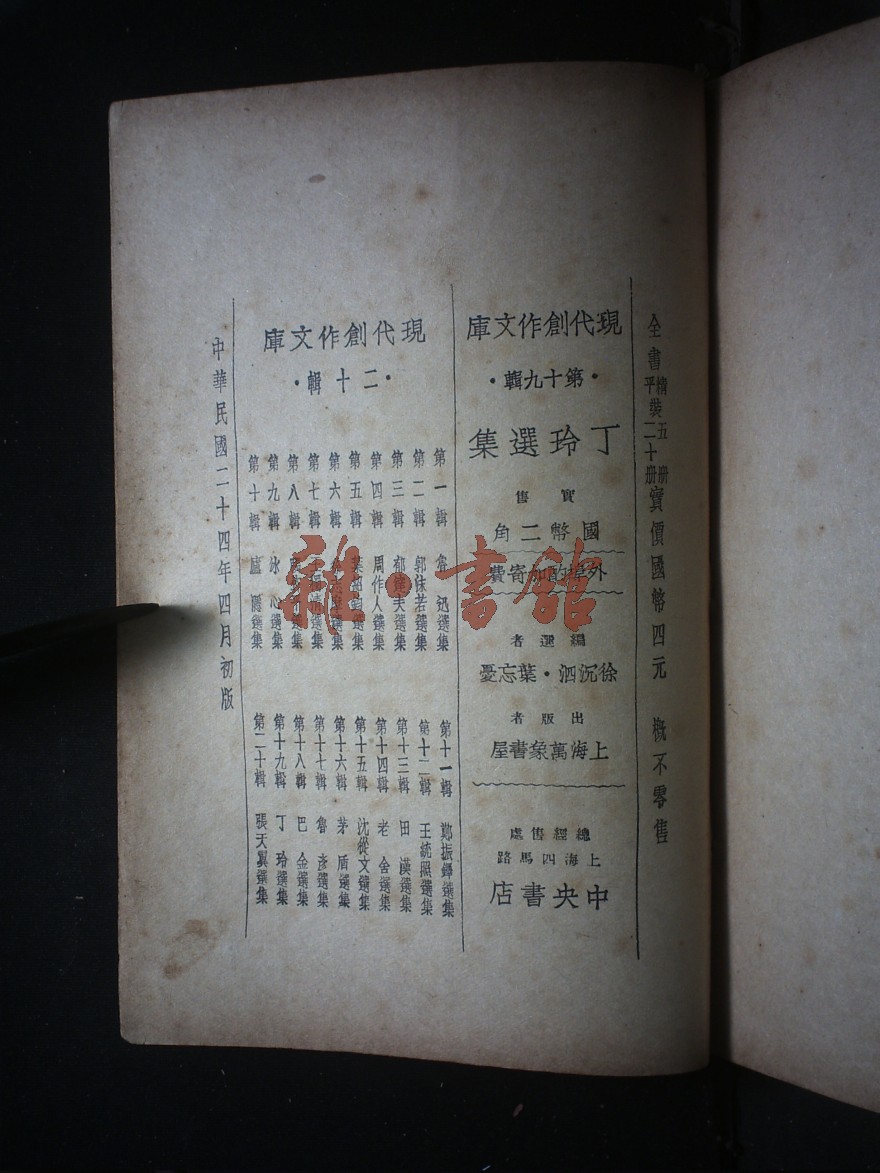 全書精裝五册平裝二十册實價國幣四元　概不零售
現代創作文庫
·第十九輯·
丁玲選集
實售
國幣二角
外埠酌加寄費
編選者
徐沉泗·葉忘憂
出版者
上海萬象書屋
總經售處
上海四馬路
中央書店
現代創作文庫
·二十輯·
第一輯　魯迅選集
第二輯　郭沫若選集
第三輯　郁達夫選集
第四輯　周作人選集
第五輯　葉紹鈞選集
第六輯　選集
第七輯　王獨清選集
第八輯　選集
第九輯　冰心選集
第十輯　廬隱選集
第十一輯　鄭振鐸選集
第十二輯　王統照選集
第十三輯　田漢選集
第十四輯　老舍選集
第十五輯　沈從文選集
第十六輯　茅盾選集
第十七輯　魯彥選集
第十八輯　巴金選集
第十九輯　丁玲選集
第二十輯　張天翼選集
中華民國二十四年四月初版
雜·書館